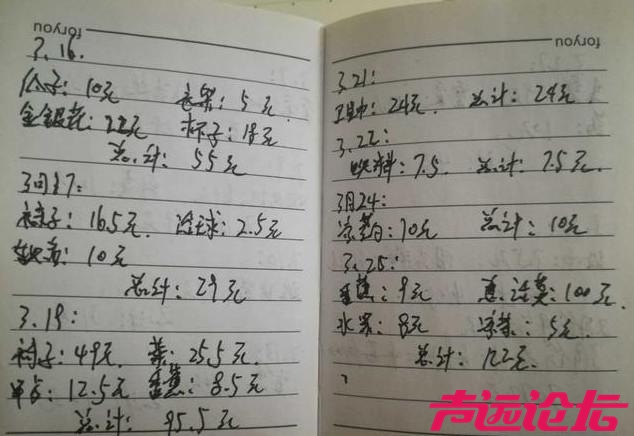 foryou
3.16.
瓜子：10元 衣架：5元
金银花：22元 杯子：18元
总计：55元
3月17：
袜子：16.5元. 洗球：2.5元
10元
总计：29元
3.19：
裤子：49元 菜：25.5元.
甲占：12.5元 香蕉：8.5元
总计：95.5元
foryou
3.21：
24元. 总计：24元
3.22：
饮料：7.5. 总计：7.5元.
3月24：
凉薯：10元 总计：10元
3.25：
香蕉：9元 息.话费：100元.
水果：8元 凉菜：5元.
总计：122元.
声远论坛